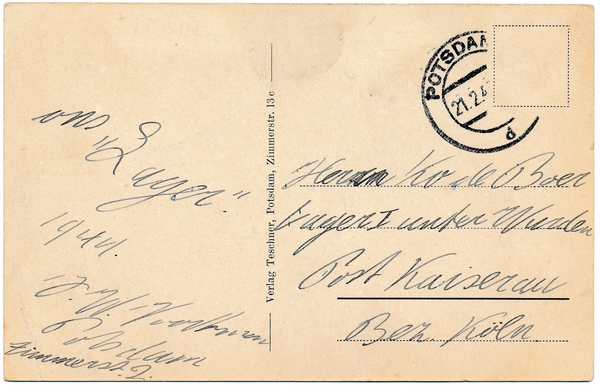 ons
"Lager."
1944
Potsdam
Zimmerstr.
Verlag Teschner, Potsdam, Zimmerstr. 13 c
POTSDAM
21.2.4
d
Herrn Ko de Boer
Lager I unter Wurden
Post Kaiserau
Bez. Köln.